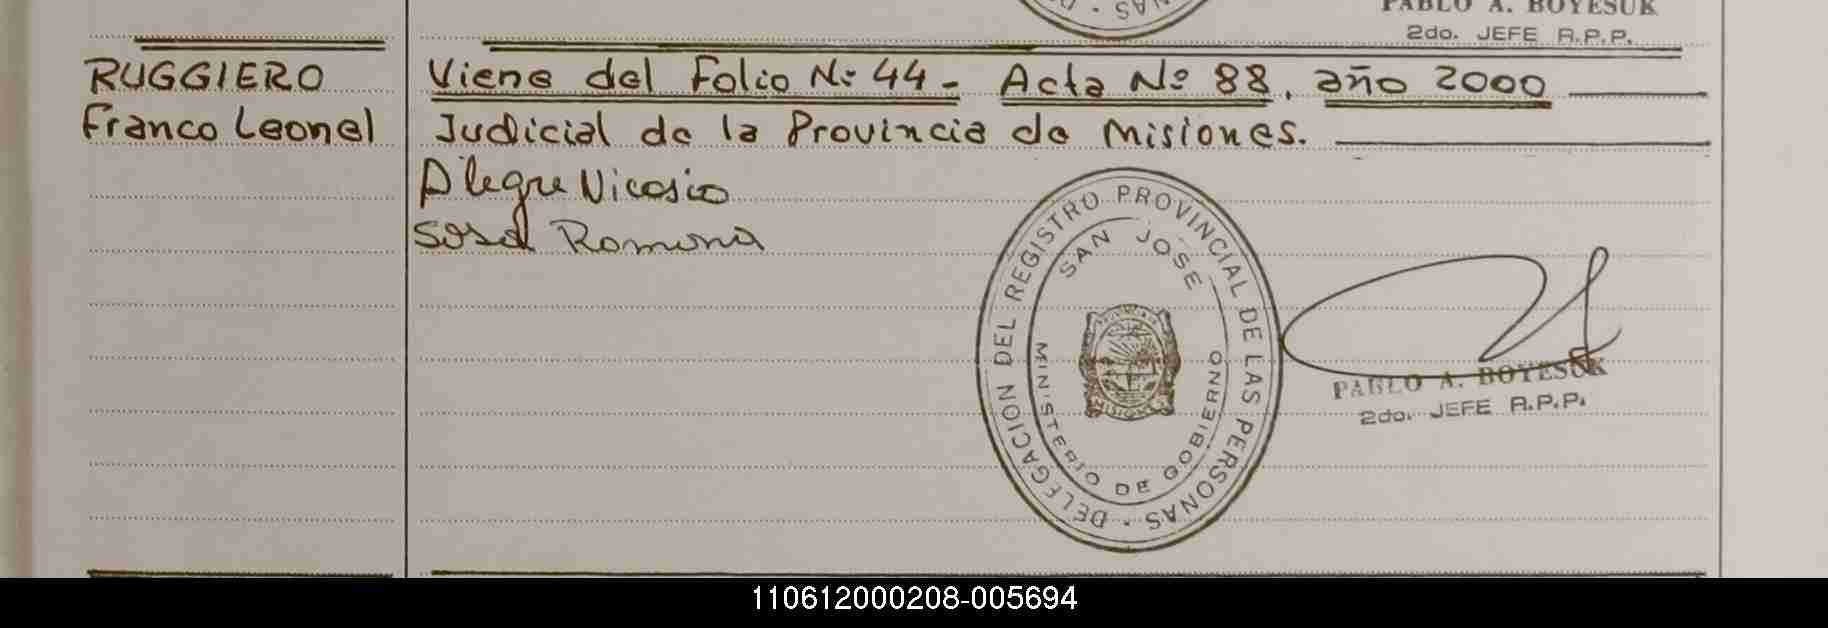 PABLO A. BOYESUK
2do. JEFE R.P.P.
RUGGIERO
Franco Leonel
Viene del Folio Nº 44- Acta Nº 88, año 2000
Judicial de la Provincia de Misiones.
Alegre Nicasio
Sosa Romona
DELEGACION DEL REGISTRO PROVINCIAL DE LAS PERSONAS
SAN JOSE
MINISTERIO DE GOBIERNO
MISIONES
PABLO A. BOYESUK
2do. JEFE R.P.P.
110612000208-005694